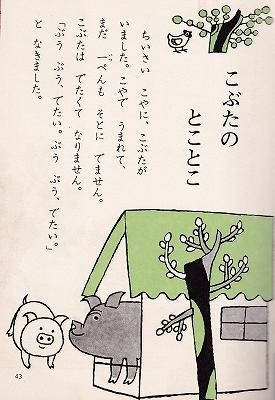 こぶたの
とことこ
ちいさい こやに、こぶたが
いました。こやで うまれて、
まだ 一ぺんも そとに でません。
こぶたは でたくて なりません。
「ぶう ぶう、でたい。ぶう ぶう、でたい。」
と なきました。
43